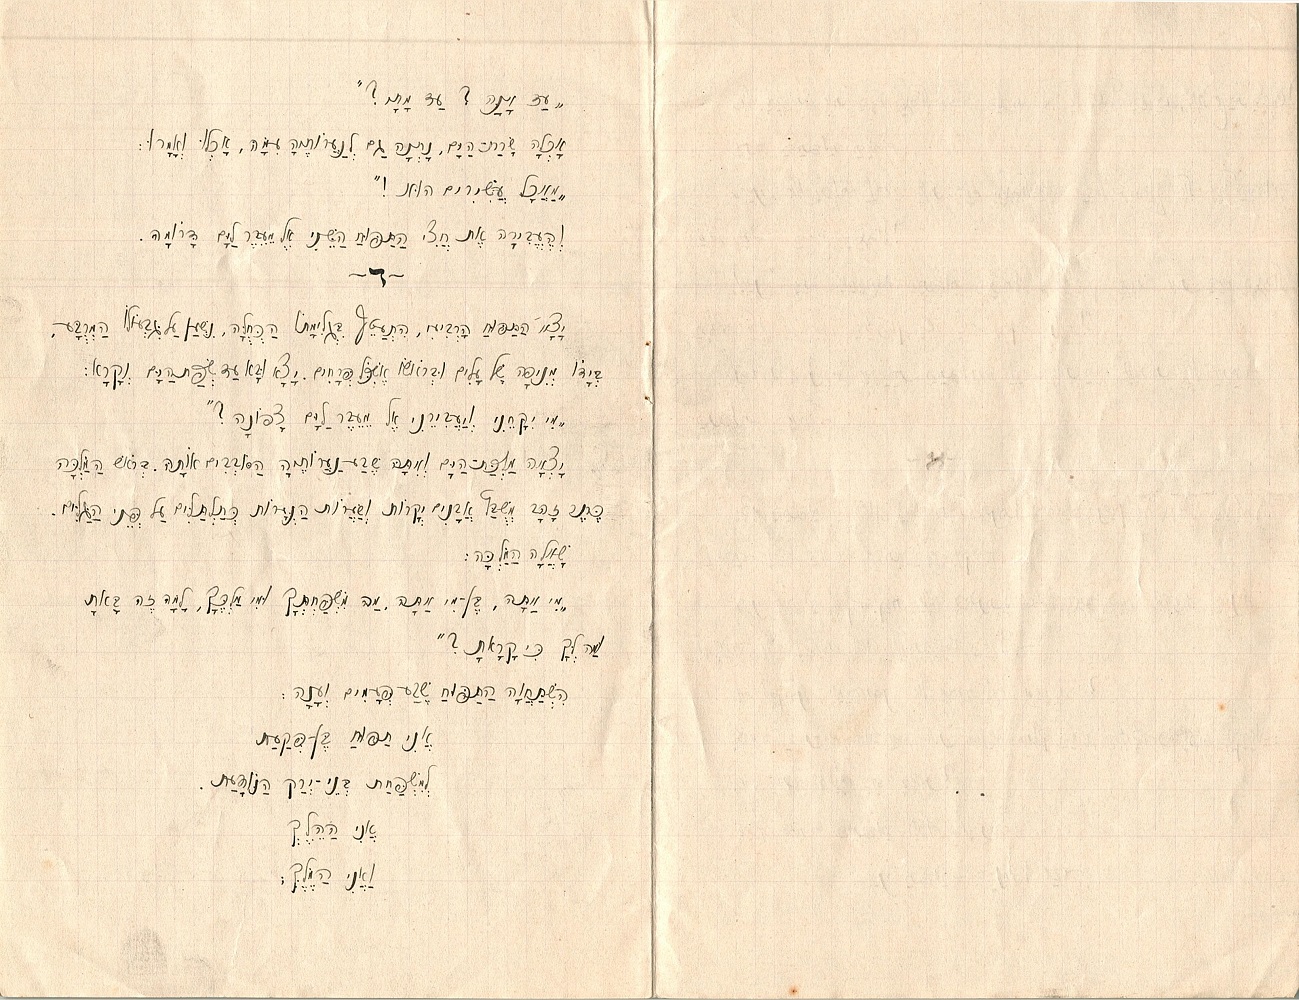 „עַד אָנָה? עַד מָתָי?"
אָכְלָה שָׂרַת־הַיָּם, נָתְנָה גַם לְנַעֲרוֹתֶיהָ עִמָּהּ, אָכְלוּ וְאָמְרוּ:
„מַאֲכַל עֲשִׁירִים הוּא!"
וְהֶעֱבִירָה אֶת חֲצִי הַתַּפּוּחַ הַשֵּׁנִי אֶל מֵעֵבֶר לַיָּם דָּרוֹמָה.
~ד~
יָצָא הַתַּפּוּחַ הָרְבִיעִי, הִתְעַטֵּף בִּגְלִימָתוֹ הַכְּחֻלָּה, נִשְׁעַן עַל גִּבְעוֹלוֹ הַמְרֻבָּע,
בְּיָדוֹ מְנִיפָה שֶׁל עָלִים וּבְרֹאשׁוֹ אֶשְׁכֹּל פְּרָחִים. יָצָא וּבָא עַד שְׂפַת הַיָּם וְקָרָא:
„מִי יִקָּחֵנִי וְיַעֲבִירֵנִי אֶל מֵעֵבֶר לַיָּם צָפוֹנָה?"
יָצְאָה מַלְכַּת־הַיָּם וְאִתָּהּ שֶׁבַע־נַעֲרוֹתֶיהָ הַסּוֹבְבִים אוֹתָהּ. בְּרֹאשׁ הַמַּלְכָּה
כֶּתֶר זָהָב מְשֻׁבַּץ אֲבָנִים יְקָרוֹת וְשַׂעֲרוֹת הַנְּעָרוֹת כְּתַלְתַּלִּים עַל פְּנֵי הַגַּלִּים.
שָׁאֲלָה הַמַּלְכָּה:
„מִי אַתָּה, בֶּן־מִי אַתָּה, מַה מִּשְׁפַּחְתְּךָ וּמִי מַלְכֶּךָ, לָמָּה זֶה בָּאתָ
וּמַה לְּךָ כִּי קָרָאתָ?"
הִשְׁתַּחֲוָה הַתַּפּוּחַ שֶׁבַע פְּעָמִים וְעָנָה:
אֲנִי תַפּוּחַ בֶּן־פְּקַעַת
לְמִשְׁפַּחַת בְּנֵי־יֶרֶק הַנּוֹדַעַת.
אֲנִי הַהֵלֶךְ
וַאֲנִי הַמֶּלֶךְ;